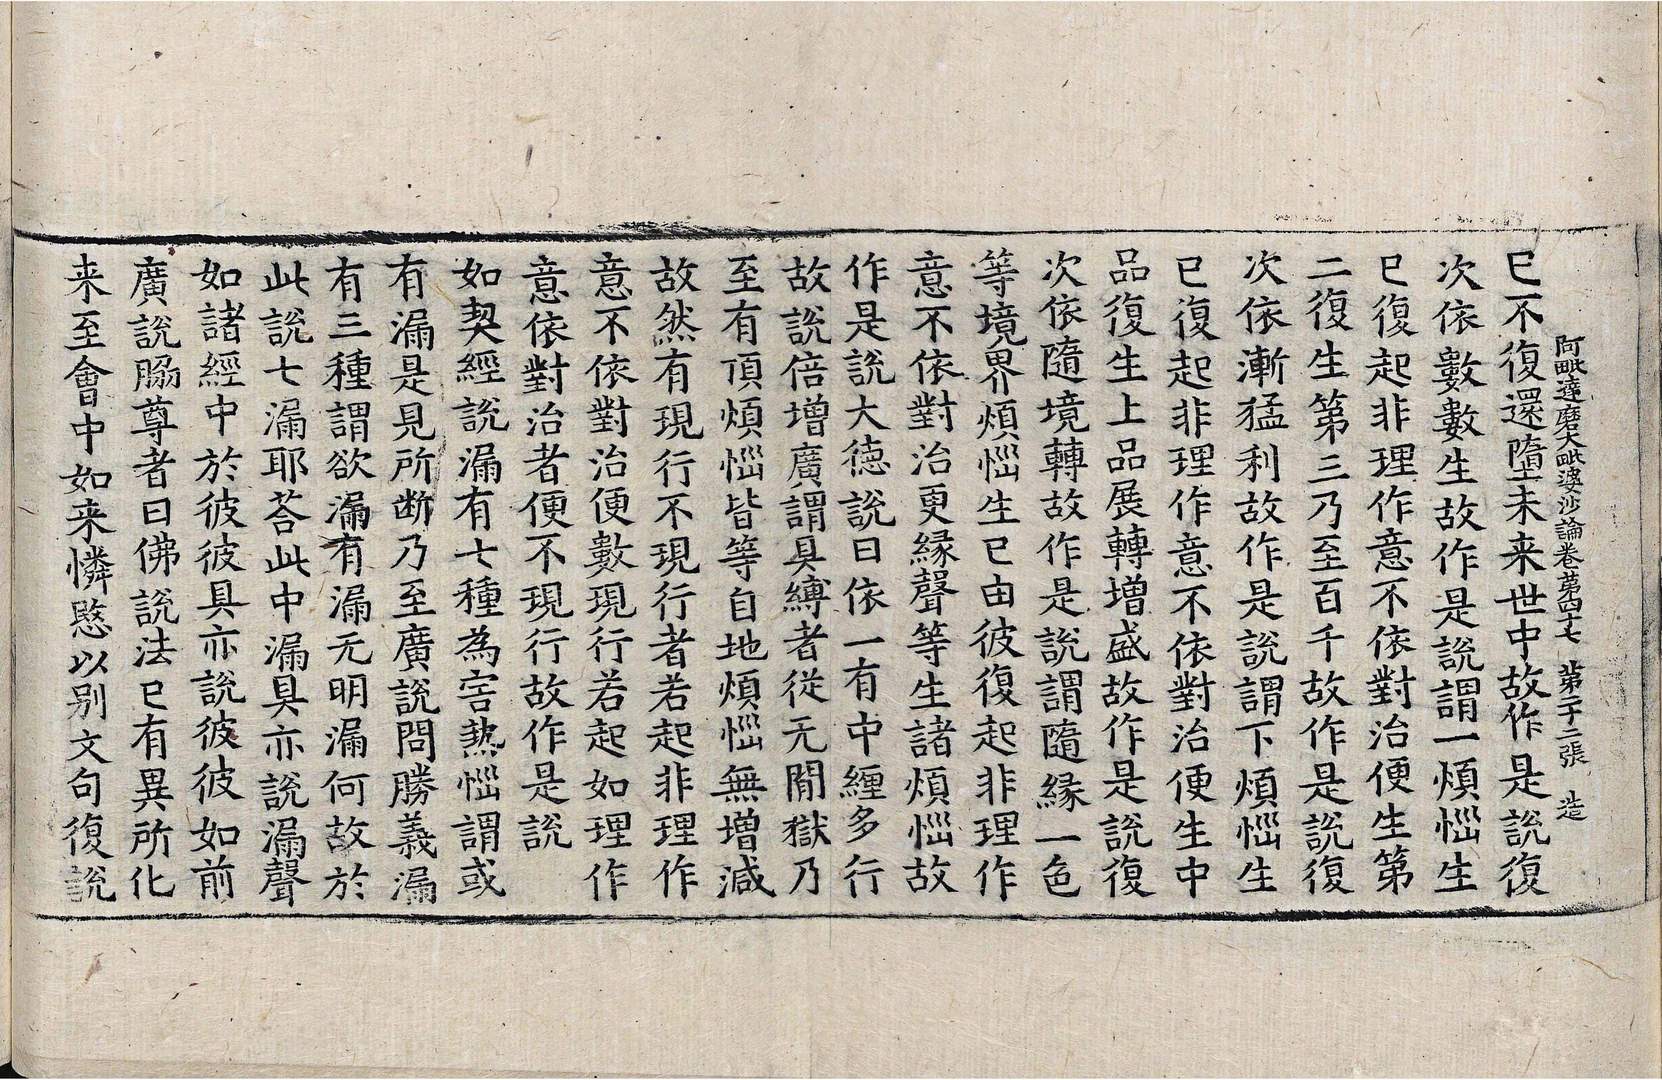 阿毗達磨大毗婆沙論卷第四十七　第二十二張　造
已不復還墮未来世中故作是說復
次依數數生故作是說謂一煩惱生
已復起非理作意不依對治便生第
二復生第三乃至百千故作是說復
次依漸猛利故作是說謂下煩惱生
已復起非理作意不依對治便生中
品復生上品展轉增盛故作是說復
次依隨境轉故作是說謂隨緣一色
等境界煩惱生已由彼復起非理作
意不依對治更緣聲等生諸煩惱故
作是說大德說曰依一有中纏多行
故說倍增廣謂具縛者從无間獄乃
至有頂煩惱皆等自地煩惱無增減
故然有現行不現行者若起非理作
意不依對治便數現行若起如理作
意依對治者便不現行故作是說
如契經說漏有七種為害熱惱謂或
有漏是見所断乃至廣說問勝義漏
有三種謂欲漏有漏无明漏何故於
此說七漏耶荅此中漏具亦說漏聲
如諸經中於彼彼具亦說彼彼如前
廣說脇尊者曰佛說法已有異所化
来至會中如来憐愍以别文句復說